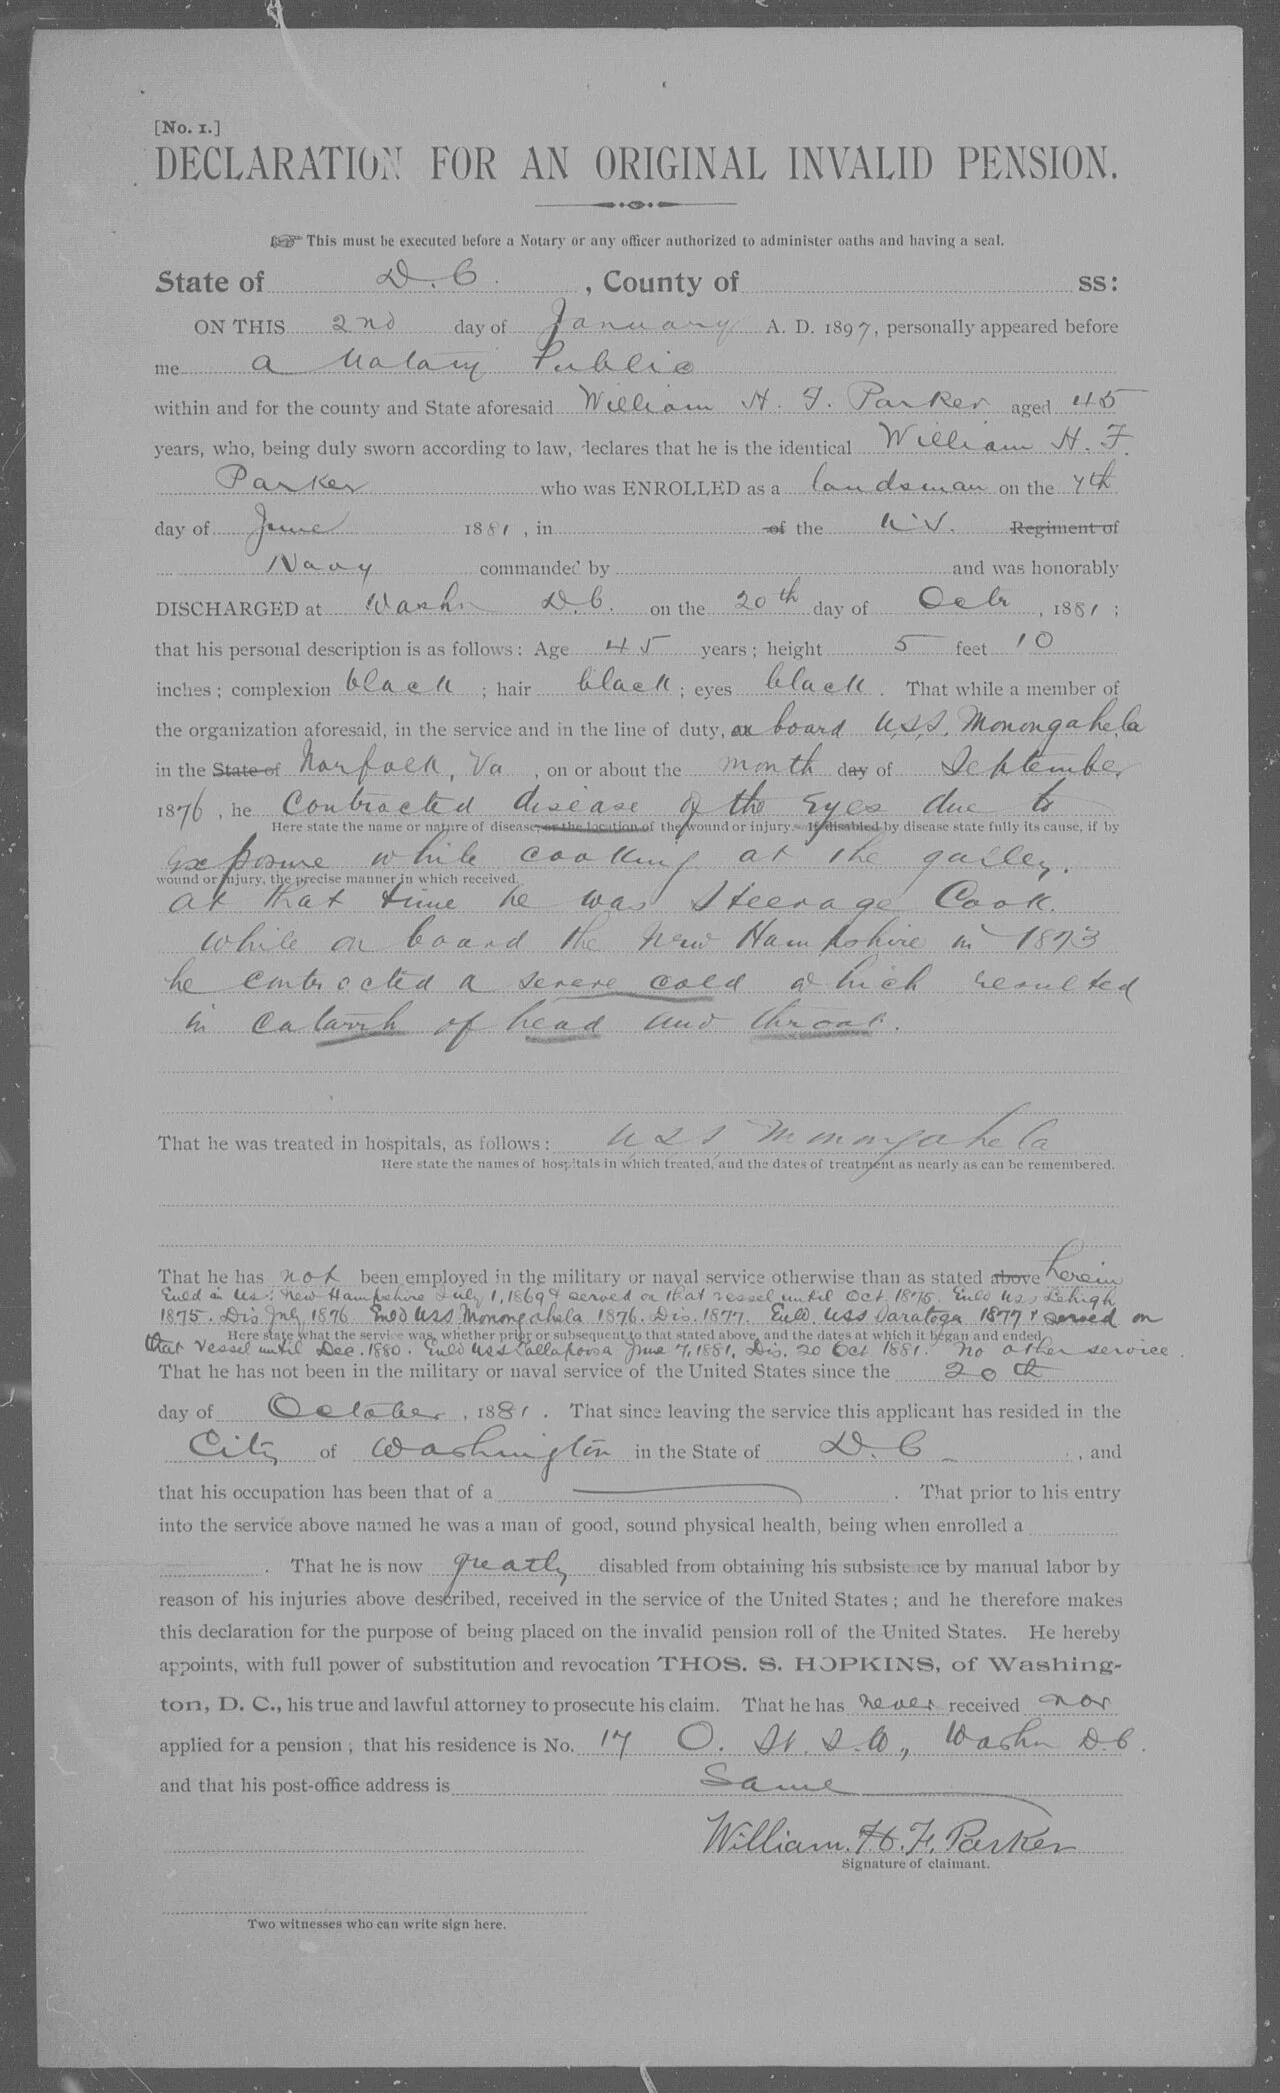 [No. 1.]
DECLARATION FOR AN ORIGINAL INVALID PENSION.
This must be executed before a Notary or any officer authorized to administer oaths and having a seal.
State of D.C. , County of ss:
ON THIS 2nd day of January A. D. 1897, personally appeared before
me a Notary Public
within and for the county and State aforesaid William H. F. Parker aged 45
years, who, being duly sworn according to law, declares that he is the identical William H. F.
Parker who was ENROLLED as a landsman on the 7th
day of June 1881, in of the U.S. Regiment of
Navy commanded by and was honorably
DISCHARGED at Washn D.C. on the 20th day of Octr , 1881;
that his personal description is as follows: Age 45 years; height 5 feet 10
inches; complexion black ; hair black ; eyes black . That while a member of
the organization aforesaid, in the service and in the line of duty, on board U.S.S. Monongahela
in the State of Norfolk, Va , on or about the month day of September
1876 , he contracted disease of the Eyes due to
Here state the name or nature of disease, or the location of the wound or injury. If disabled by disease state fully its cause, if by
exposure while cooking at the galley.
wound or injury, the precise manner in which received.
at that time he was Steerage Cook.
While on board the New Hampshire in 1873
he contracted a severe cold which resulted
in catarrh of head and throat.
That he was treated in hospitals, as follows: U S S Monongahela
Here state the names of hospitals in which treated, and the dates of treatment as nearly as can be remembered.
That he has not been employed in the military or naval service otherwise than as stated above herein
Enld in U.S.S. New Hampshire July 1, 1869 & served on that vessel until Oct. 1875. Enld USS Lehigh
1875. Dis. July 1876 Enld USS Monongahela 1876. Dis. 1877. Enld. USS Saratoga 1877 & served on
Here state what the service was, whether prior or subsequent to that stated above, and the dates at which it began and ended.
that vessel until Dec. 1880. Enld USS Tallapoosa June 7, 1881, Dis. 20 Oct 1881. No other service.
That he has not been in the military or naval service of the United States since the 20th
day of October , 1881. That since leaving the service this applicant has resided in the
City of Washington in the State of D.C. , and
that his occupation has been that of a . That prior to his entry
into the service above named he was a man of good, sound physical health, being when enrolled a
. That he is now greatly disabled from obtaining his subsistence by manual labor by
reason of his injuries above described, received in the service of the United States; and he therefore makes
this declaration for the purpose of being placed on the invalid pension roll of the United States. He hereby
appoints, with full power of substitution and revocation THOS. S. HOPKINS, of Washing-
ton, D. C., his true and lawful attorney to prosecute his claim. That he has never received nor
applied for a pension; that his residence is No. 17 O. St. S.W., Washn D.C.
and that his post-office address is Same
William H. F. Parker
Signature of claimant.
Two witnesses who can write sign here.